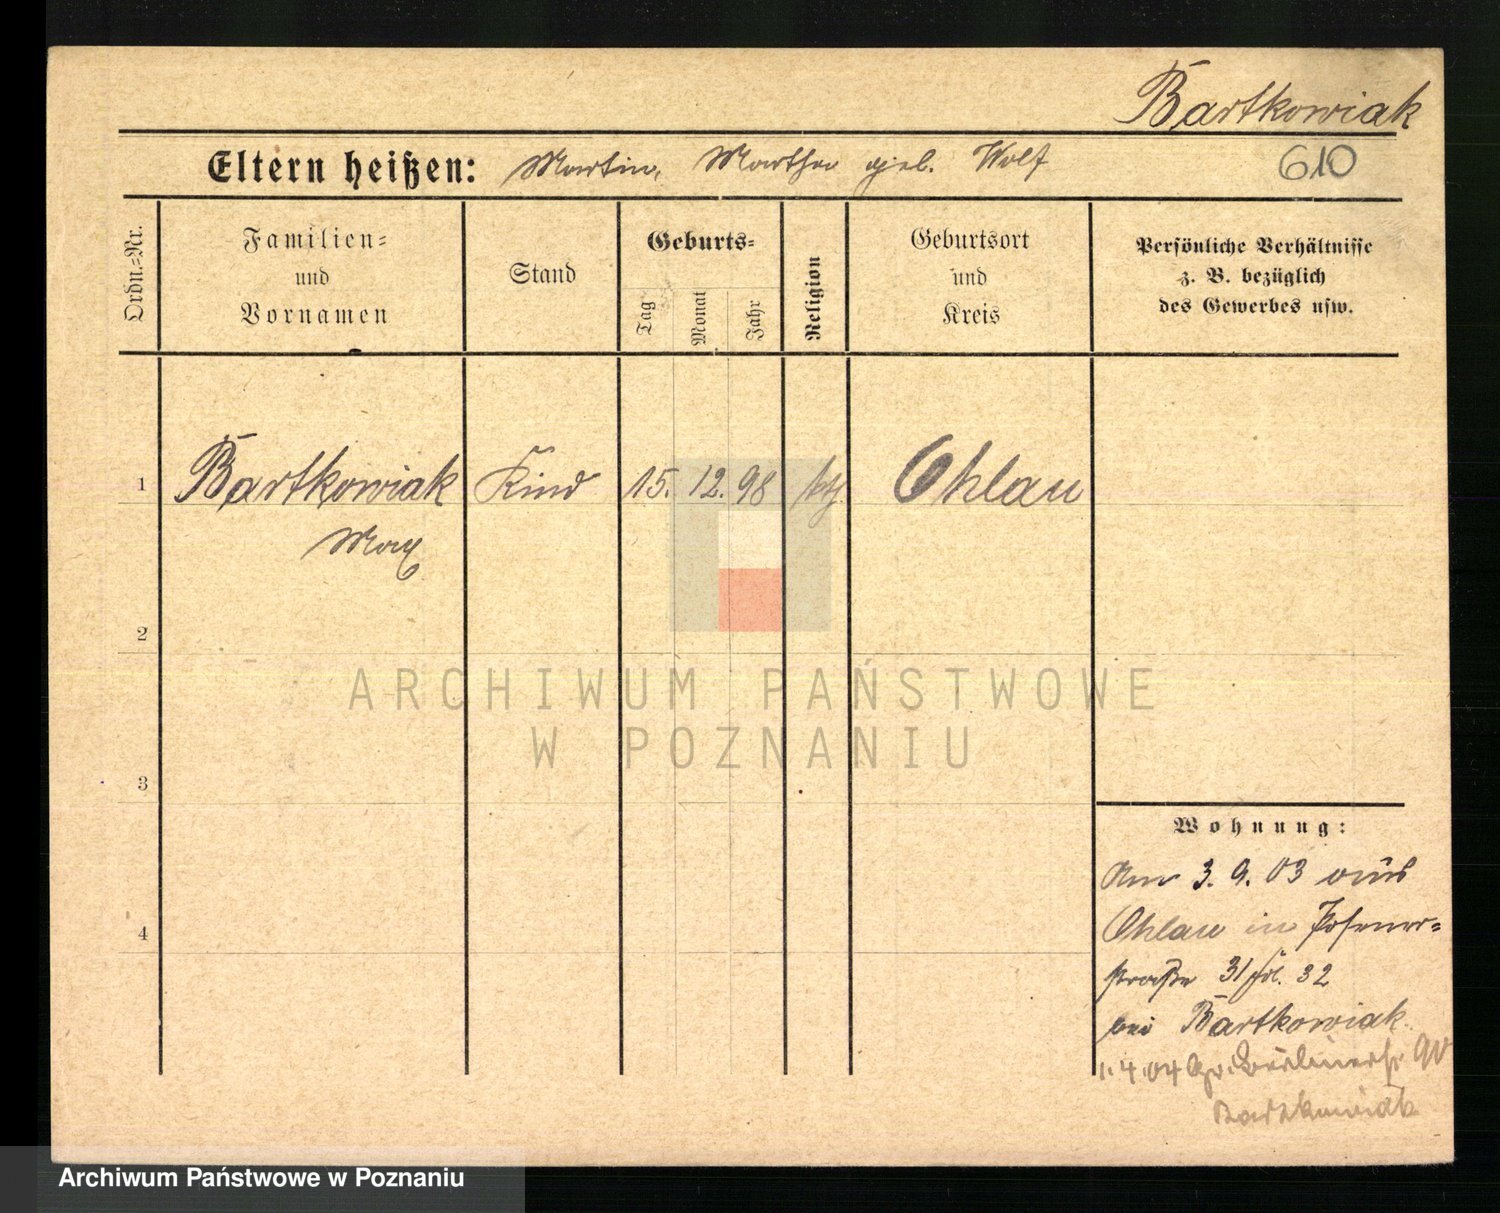 Bartkowiak
Eltern heißen: Martin, Martha geb. Wolf 610
Ordn.-Nr.
Familien-
und
Vornamen
Stand
Geburts-
Tag
Monat
Jahr
Religion
Geburtsort
und
Kreis
Persönliche Verhältnisse
z. B. bezüglich
des Gewerbes usw.
1 Bartkowiak Kind 15. 12. 98 kth Ohlau
Max
2
ARCHIWUM PAŃSTWOWE
W POZNANIU
3
Wohnung:
Am 3. 9. 03 aus
Ohlau in Posener-
straße 31 32
4
bei Bartkowiak
1.4.04 Berlinerstr 90
Bartkowiak
Archiwum Państwowe w Poznaniu